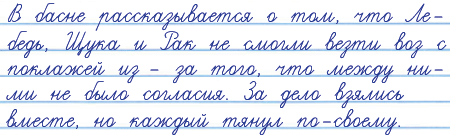 В басне рассказывается о том, что Ле-
бедь, Щука и Рак не смогли везти воз с
поклажей из - за того, что между ни-
ми не было согласия. За дело взялись
вместе, но каждый тянул по-своему.